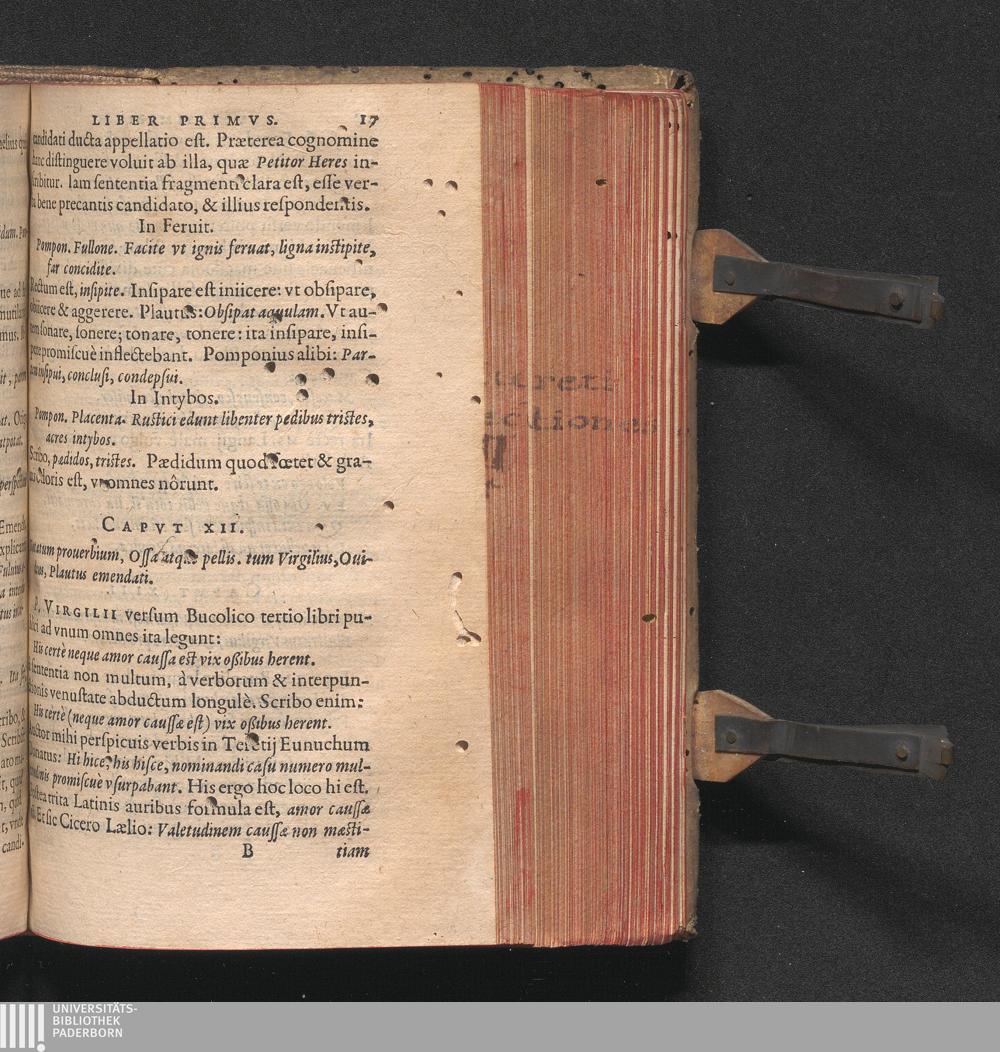 LIBER PRIMVS. 17
candidati ducta appellatio est. Præterea cognomine
hanc distinguere voluit ab illa, quæ Petitor Heres in-
scribitur. Iam sententia fragmenti clara est, esse ver-
ba bene precantis candidato, & illius respondentis.
In Feruit.
Pompon. Fullone. Facite vt ignis feruat, ligna instipite,
far concidite.
Rectum est, insipite. Insipare est iniicere: vt obsipare,
obiicere & aggerere. Plautus: Obsipat aquulam. Vt au-
tem sonare, sonere; tonare, tonere: ita insipare, insi-
pere promiscuè inflectebant. Pomponius alibi: Par-
insipui, conclusi, condepsui.
In Intybos.
Pompon. Placenta. Rustici edunt libenter pedibus tristes,
acres intybos.
Scribo, pædidos, tristes. Pædidum quod fœtet & gra-
odoris est, vt omnes nôrunt.
CAPVT XII.
prouerbium, Ossa atque pellis. tum Virgilius, Oui-
dius, Plautus emendati.
P. VIRGILII versum Bucolico tertio libri pu-
blici ad vnum omnes ita legunt:
His certè neque amor caussa est vix oßibus herent.
sententia non multum, à verborum & interpun-
ctionis venustate abductum longulè. Scribo enim:
His certè (neque amor caussæ est) vix oßibus herent.
Auctor mihi perspicuis verbis in Terētij Eunuchum
Donatus: Hi hice, his hisce, nominandi casu numero mul-
promiscuè vsurpabant. His ergo hoc loco hi est.
trita Latinis auribus formula est, amor caussæ
Et sic Cicero Lælio: Valetudinem caussæ non mœsti-
B tiam
candi-
ectiones
UNIVERSITÄTS-
BIBLIOTHEK
PADERBORN